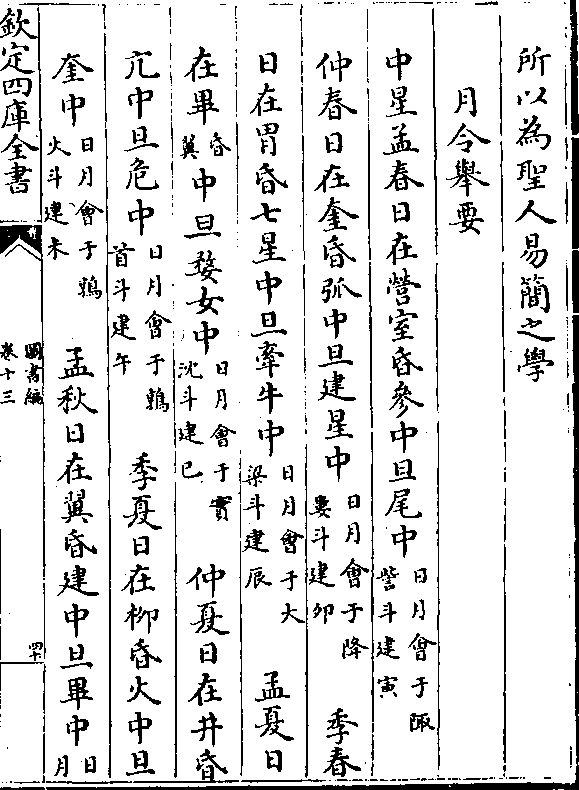 所以為聖人易簡之學
月令舉要
中星孟春日在營室昏參中旦尾中日月會于陬訾斗建寅
仲春日在奎昏弧中旦建星中日月會于降婁斗建卯 季春
日在胃昏七星中旦牽牛中日月會于大梁斗建辰 孟夏日
在畢昏翼中旦婺女中日月會于實沈斗建巳 仲夏日在井昏
亢中旦危中日月會于鶉首斗建午 季夏日在柳昏火中旦
奎中日月會于鶉火斗建未 孟秋日在翼昏建中旦畢中日月
欽定四庫全書
圖書編
卷十三
四十